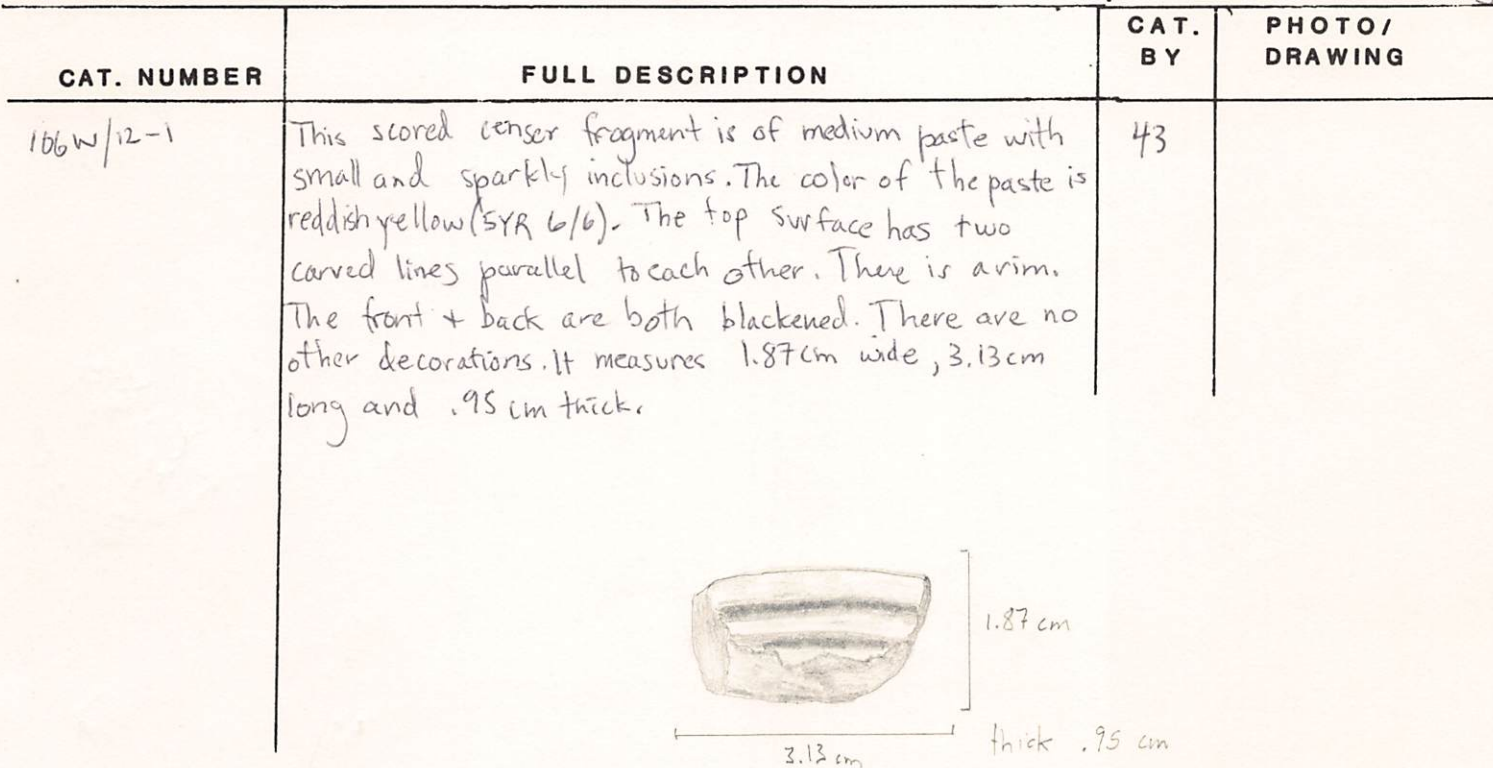 CAT. NUMBER
FULL DESCRIPTION
CAT. BY
PHOTO/ DRAWING
106W/12-1
This scored censer fragment is of medium paste with
small and sparkly inclusions. The color of the paste is
reddish yellow (5YR 6/6). The top surface has two
carved lines parallel to each other. There is a rim.
The front + back are both blackened. There are no
other decorations. It measures 1.87cm wide, 3.13cm
long and .95 cm thick.
43
1.87 cm
3.13 cm
thick .95 cm